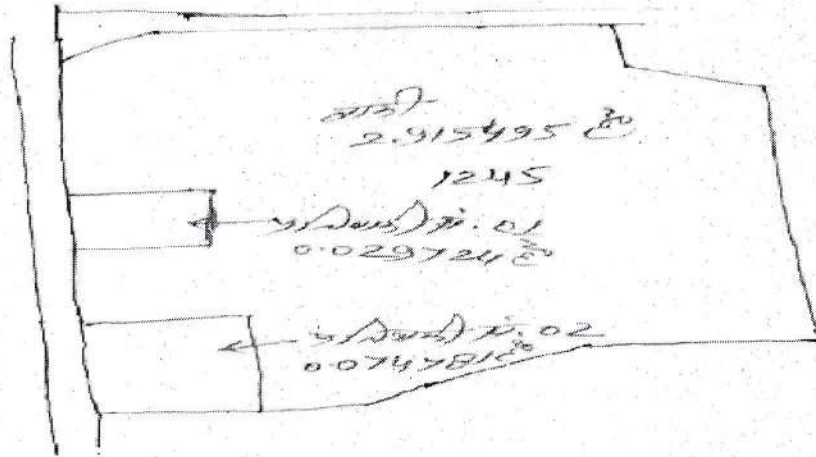 वादी
2.915495 हे०
1245
प्रतिवादी नं. 01
0.029724 हे०
प्रतिवादी नं. 02
0.074781 हे०